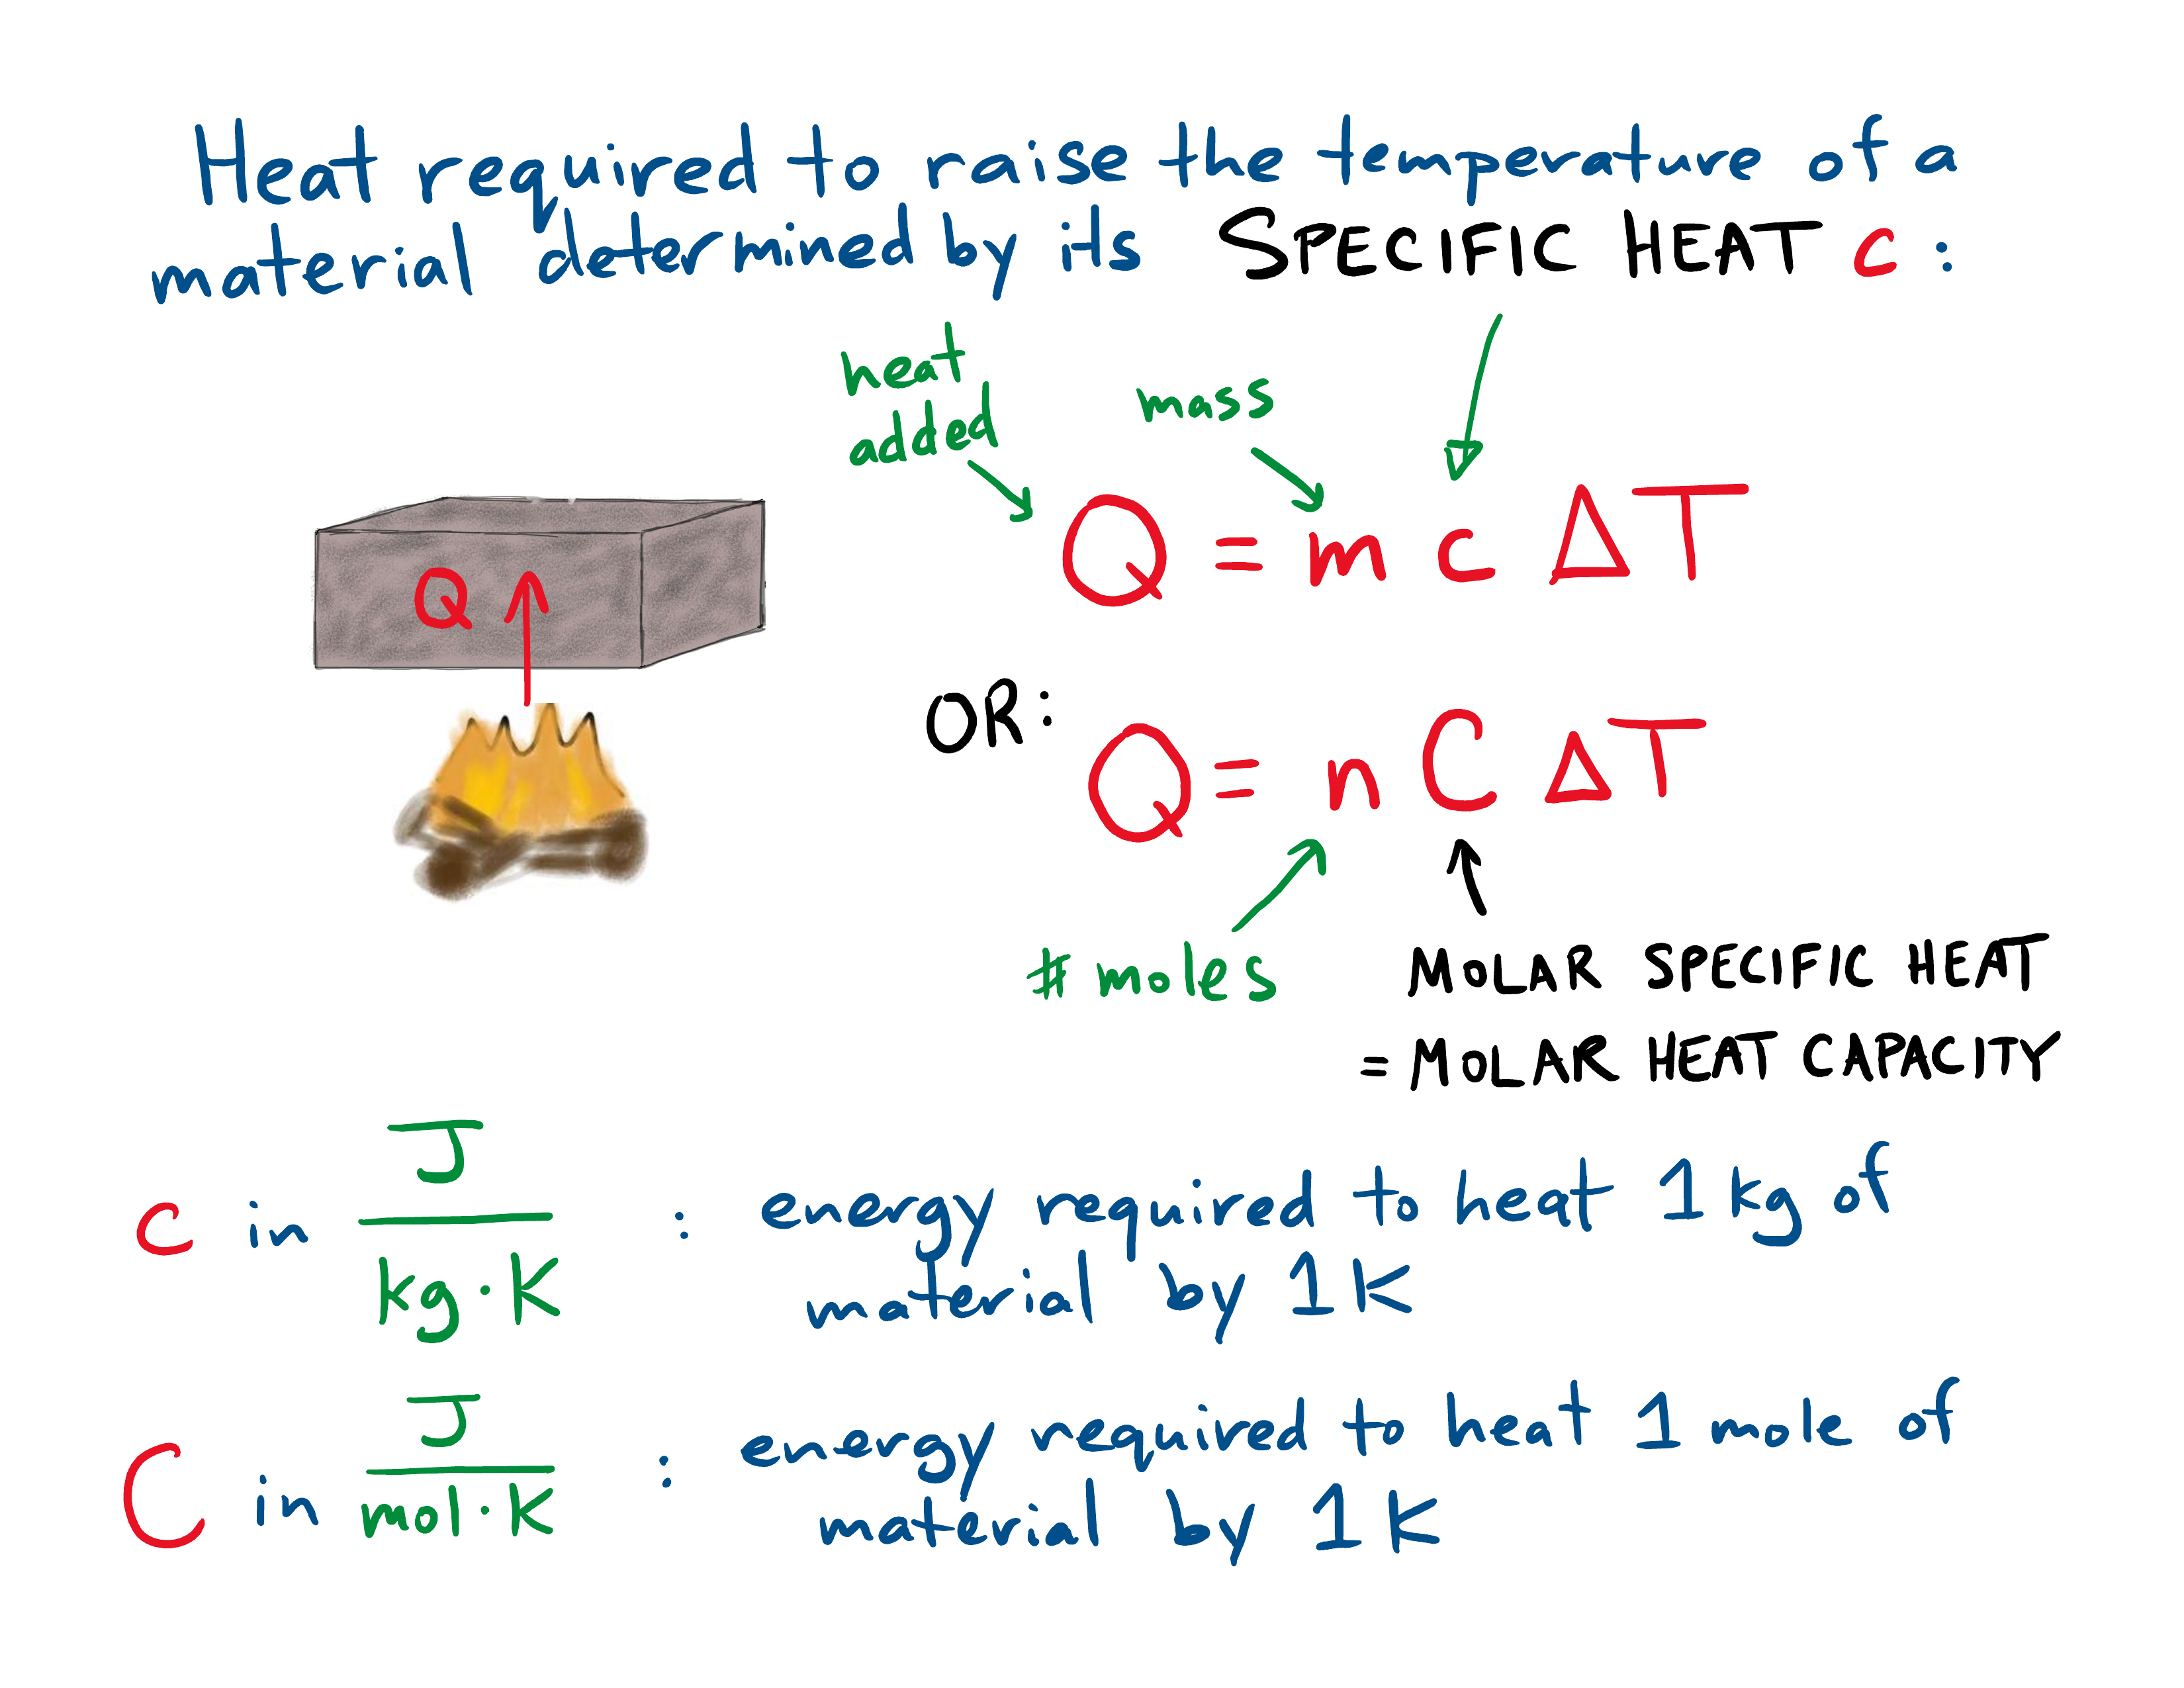 Heat required to raise the temperature of a
material determined by its SPECIFIC HEAT c:
heat
added
mass
Q = m c ΔT
Q
OR:
Q = n C ΔT
# moles
MOLAR SPECIFIC HEAT
= MOLAR HEAT CAPACITY
c in J/kg·K : energy required to heat 1 kg of
material by 1K
C in J/mol·K : energy required to heat 1 mole of
material by 1K